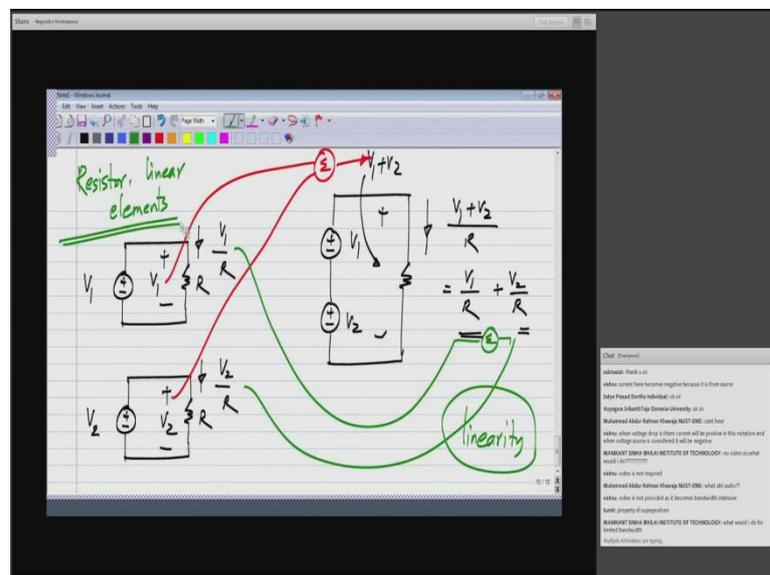 Share - Nagendra Krishnapura
Full Screen
Edit View Insert Actions Tools Help
Page Width
Resistor, linear
elements
Σ
V1+V2
V1
+
V1
−
R
V1/R
+
V1
V2
V1+V2
R
= V1/R + V2/R
=
Σ
V2
+
V2
−
R
V2/R
linearity
10 / 10
Chat (Everyone)
sabhasish: thank u sir
vishnu: current here becomes negative because it is from source
Satya Prasad Donthu Individual: ok sir
Osmania University: ok sir
Muhammad Abdur Rehman Khawaja NUST-EME: cant hear
vishnu: when voltage drop is there current will be positive in this notation and
when voltage source is considered it will be negative
MANIKANT SINHA BHILAI INSTITUTE OF TECHNOLOGY: no video sir,what
would i do
vishnu: video is not required
Muhammad Abdur Rehman Khawaja NUST-EME: what abt audio??
vishnu: video is not provided as it becomes bandwidth intensive
Sumit: property of superposition
MANIKANT SINHA BHILAI INSTITUTE OF TECHNOLOGY: what would i do for
limited bandwidth
Multiple Attendees are typing...